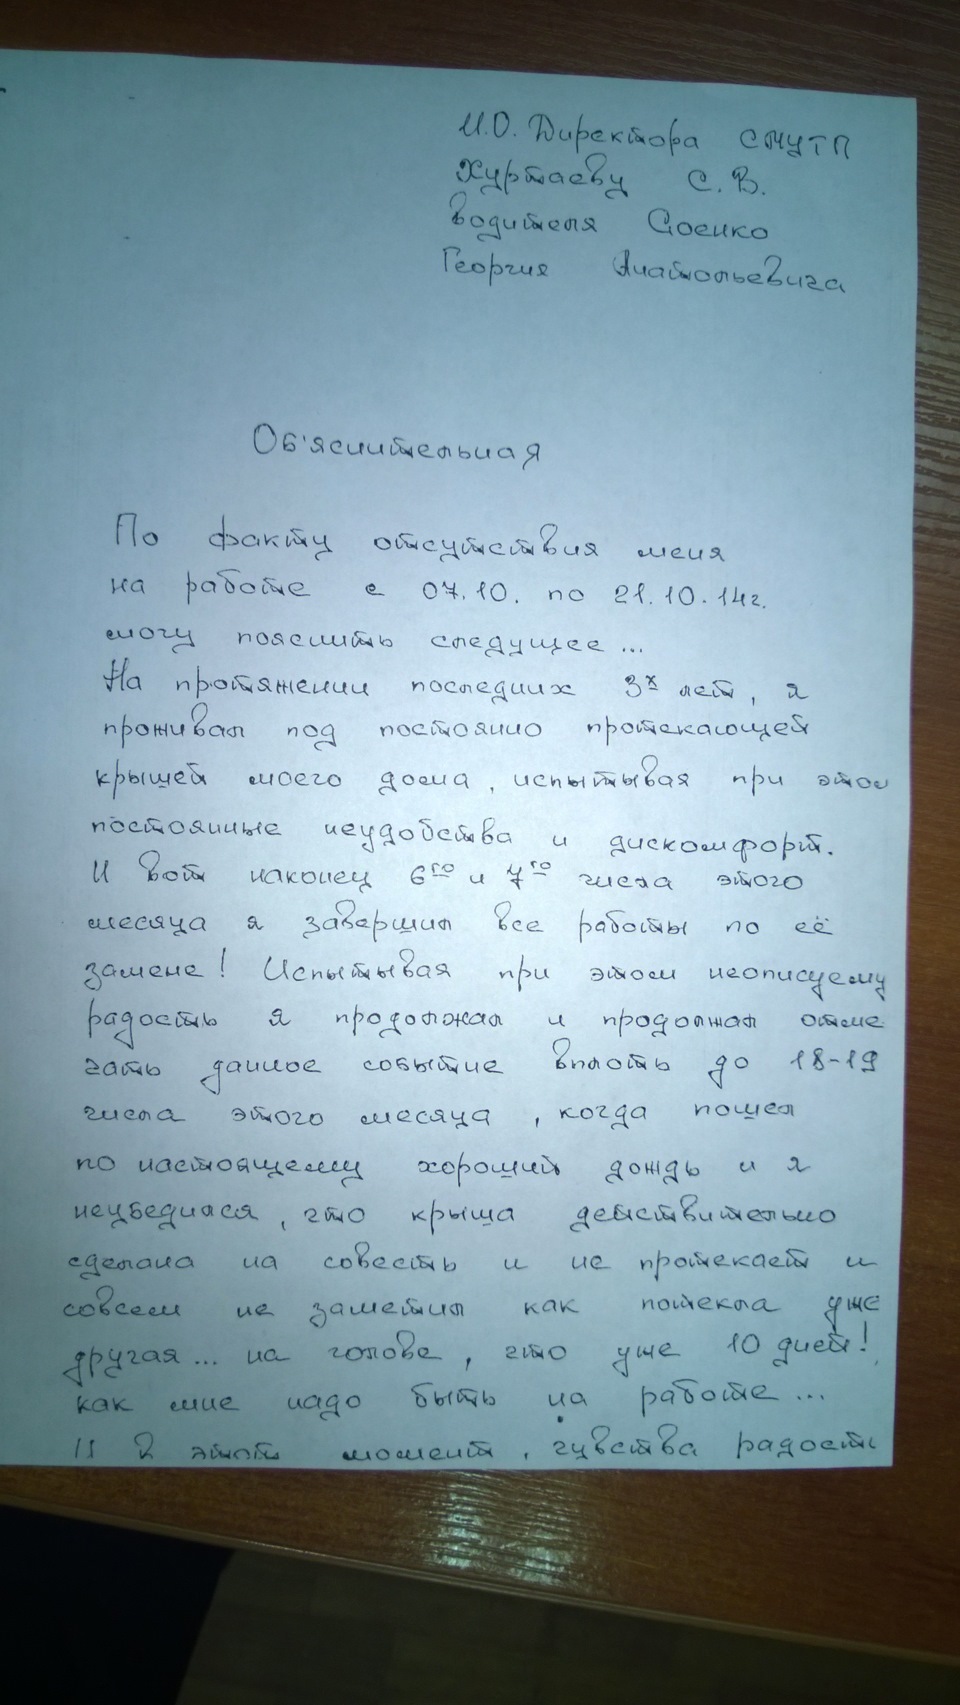 И.О. Директора СМУТП
Хуртаеву С.В.
водителя Соенко
Георгия Анатольевича
Об'яснительная
По факту отсутствия меня
на работе с 07.10. по 21.10.14г.
могу пояснить следущее...
На протяжении последних 3х лет, я
проживал под постоянно протекающей
крышей моего дома, испытывая при этом
постоянные неудобства и дискомфорт.
И вот наконец 6го и 7го числа этого
месяца я завершил все работы по её
замене! Испытывая при этом неописуему
радость я продолжал и продолжал отме
чать данное событие вплоть до 18-19
числа этого месяца, когда пошел
по настоящему хороший дождь и я
неубедился, что крыша действительно
сделана на совесть и не протекает и
совсем не заметил как потекла уже
другая... на голове, что уже 10 дней!
как мне надо быть на работе...
И в этот момент, чувства радости